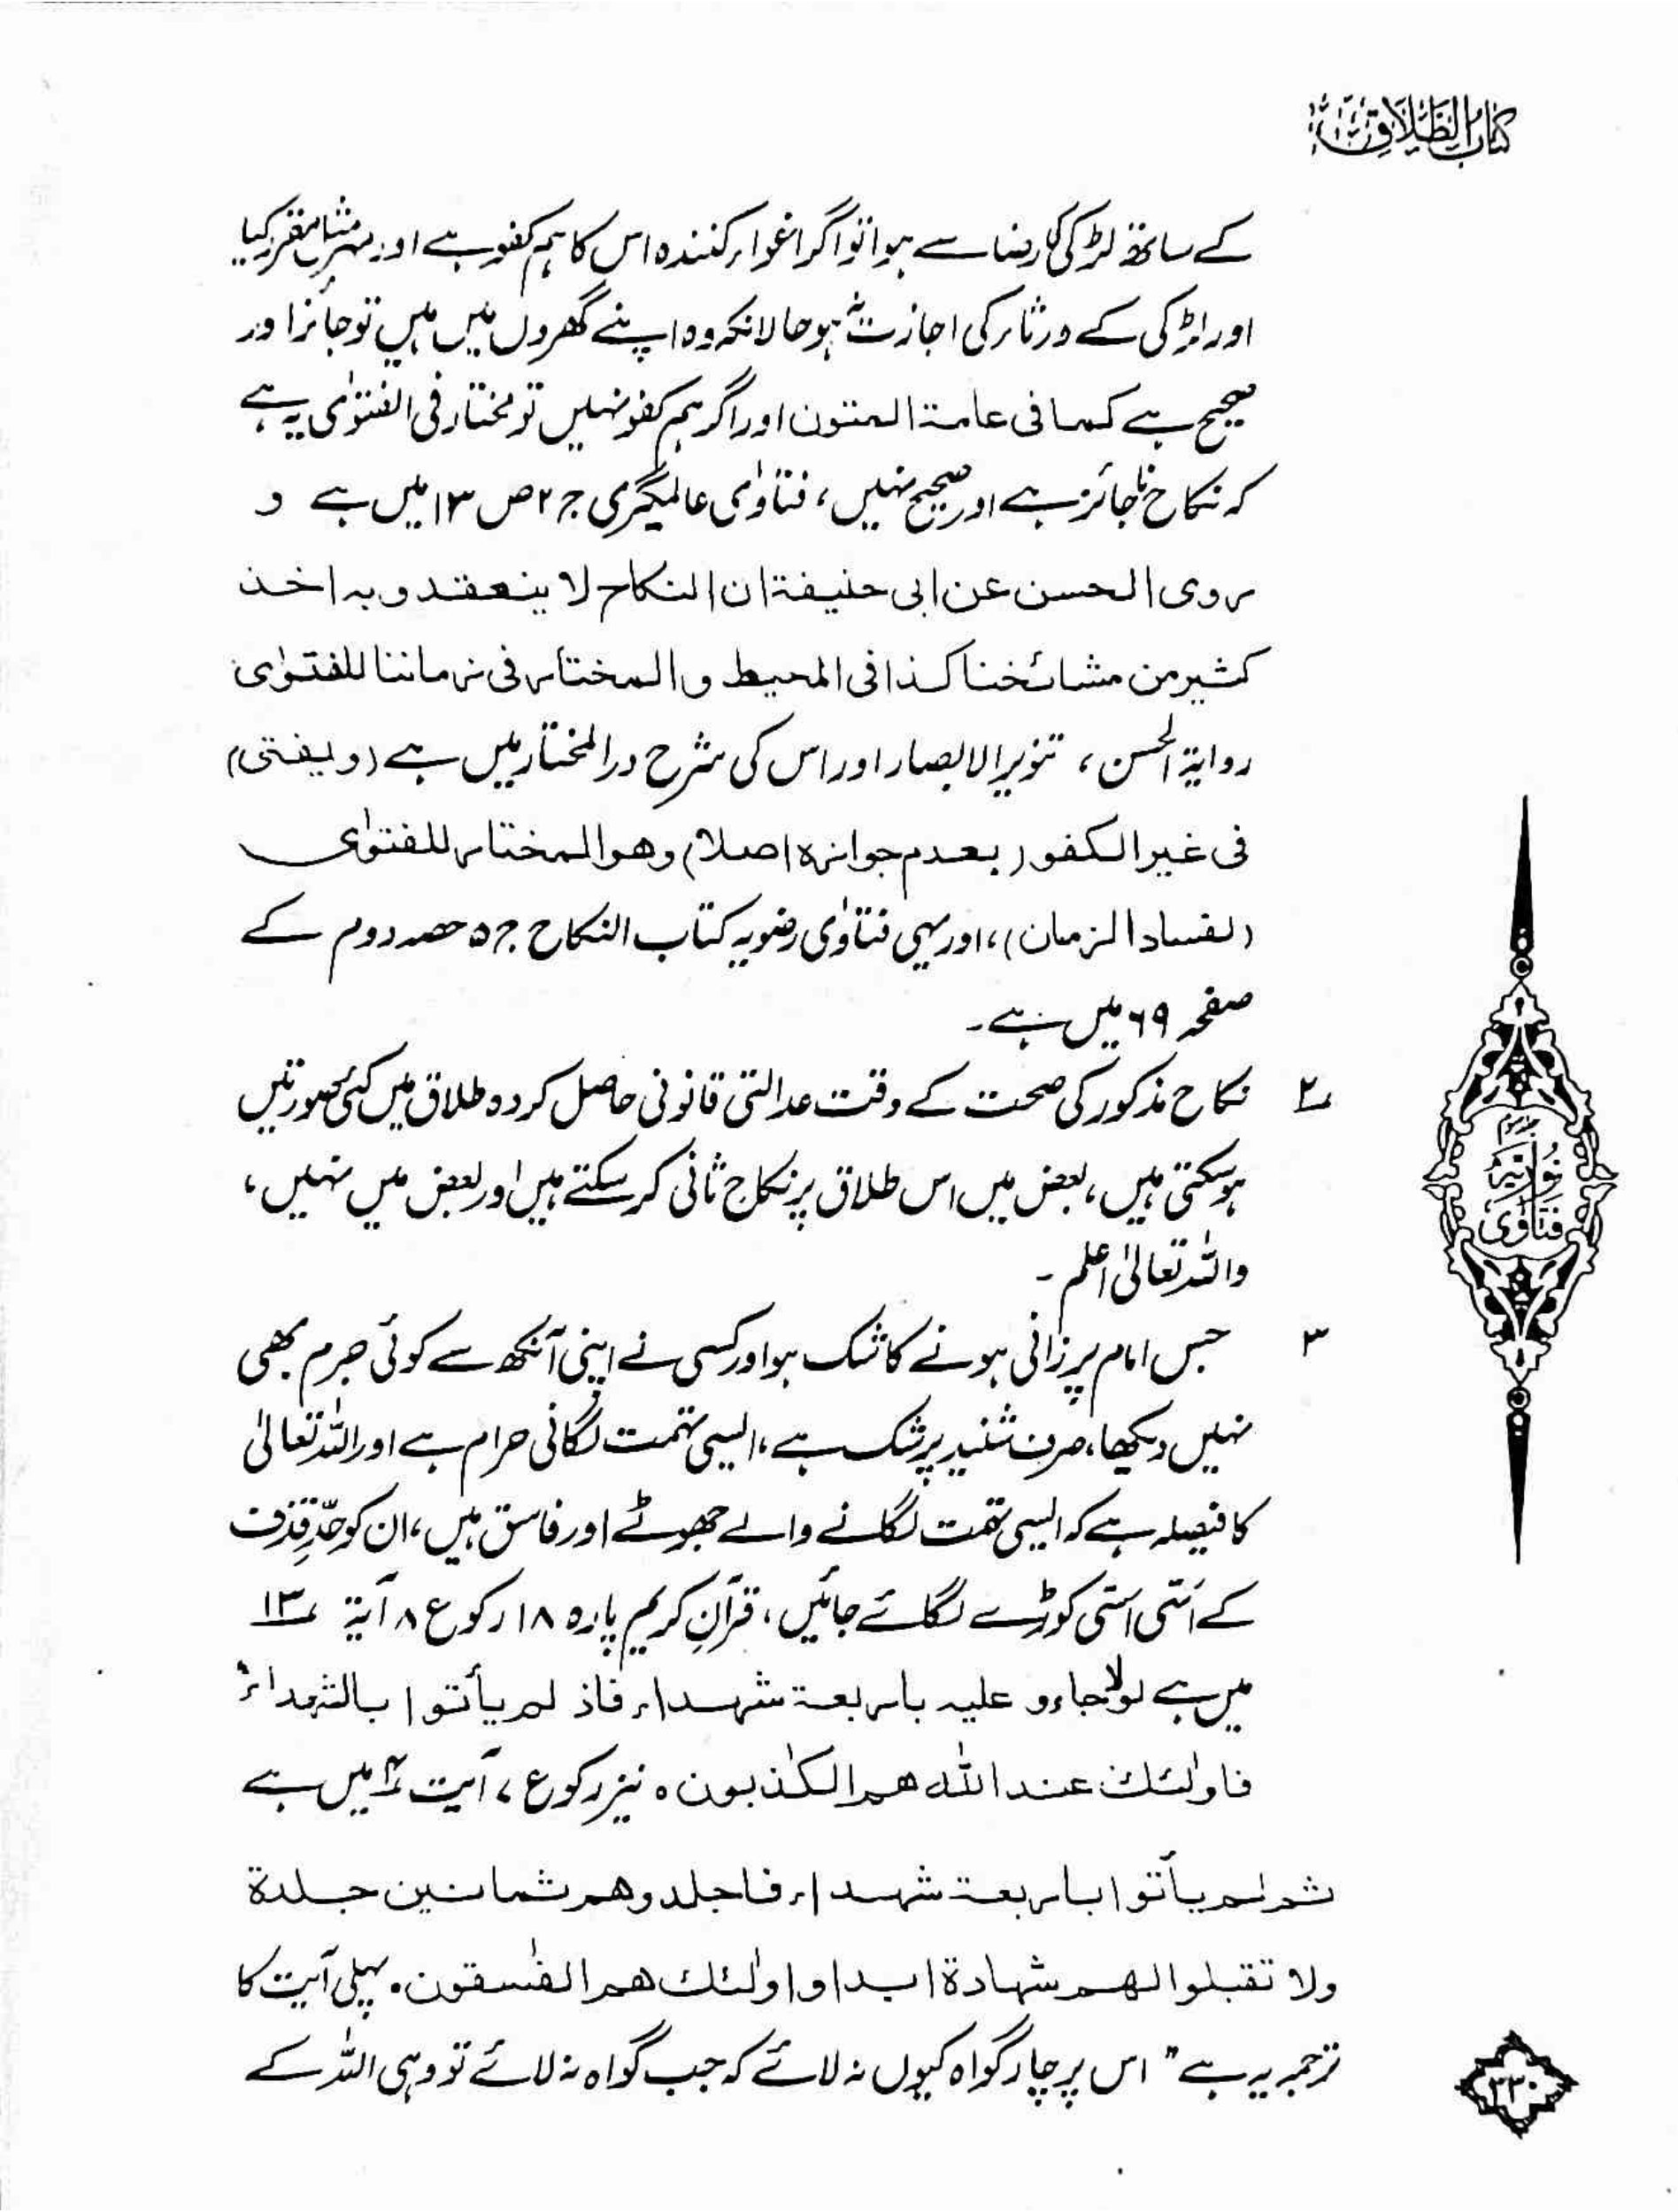 کتاب الطلاق
کے ساتھ لڑکی کی رضا سے ہوا تو اگر اغواء کنندہ اس کا ہم کفو ہے اور مہر مثل مقرر کیا
اور لڑکی کے ورثاء کی اجازت نہ ہو حالانکہ وہ اپنے گھروں میں ہیں تو جائز اور
صحیح ہے کما فی عامۃ المتون اور اگر ہم کفو نہیں تو مختار فی الفتوٰی یہ ہے
کہ نکاح ناجائز ہے اور صحیح نہیں، فتاوٰی عالمگیری ج ۲ ص ۱۳ میں ہے و
روی الحسن عن ابی حنیفۃ ان النکاح لا ینعقد و بہ اخذ
کثیر من مشائخنا کذا فی المحیط و المختار فی زماننا للفتوٰی
روایۃ الحسن، تنویر الابصار اور اس کی شرح درالمختار میں ہے (و یفتی)
فی غیر الکفو (بعدم جوازہ اصلا) وھو المختار للفتوٰی
(لفساد الزمان)، اور یہی فتاوٰی رضویہ کتاب النکاح ج ۵ حصہ دوم کے
صفحہ ۶۹ میں ہے۔
۲؎ نکاح مذکور کی صحت کے وقت عدالتی قانونی حاصل کردہ طلاق میں کئی صورتیں
ہو سکتی ہیں، بعض میں اس طلاق پر نکاح ثانی کر سکتے ہیں اور بعض میں نہیں،
واللہ تعالیٰ اعلم۔
۳ جس امام پر زانی ہونے کا شک ہو اور کسی نے اپنی آنکھ سے کوئی جرم بھی
نہیں دیکھا، صرف شنید پر شک ہے، ایسی تہمت لگانی حرام ہے اور اللہ تعالیٰ
کا فیصلہ ہے کہ ایسی تہمت لگانے والے جھوٹے اور فاسق ہیں، ان کو حدِّ قذف
کے اَسّی اَسّی کوڑے لگائے جائیں، قرآنِ کریم پارہ ۱۸ رکوع ۸ آیۃ ۱۳؎
میں ہے لولا جاءو علیہ باربعۃ شہداء فاذ لم یأتوا بالشہداء
فاولٰئک عند اللہ ھم الکٰذبون ہ نیز رکوع ۷ آیت ۴؎ میں ہے
ثم لم یأتوا باربعۃ شہداء فاجلدوھم ثمانین جلدۃ
ولا تقبلوا لھم شہادۃ ابدا و اولٰئک ھم الفٰسقون۔ پہلی آیت کا
ترجمہ یہ ہے " اس پر چار گواہ کیوں نہ لائے کہ جب گواہ نہ لائے تو وہی اللہ کے
فتاوٰی نوریہ
۳۳۰